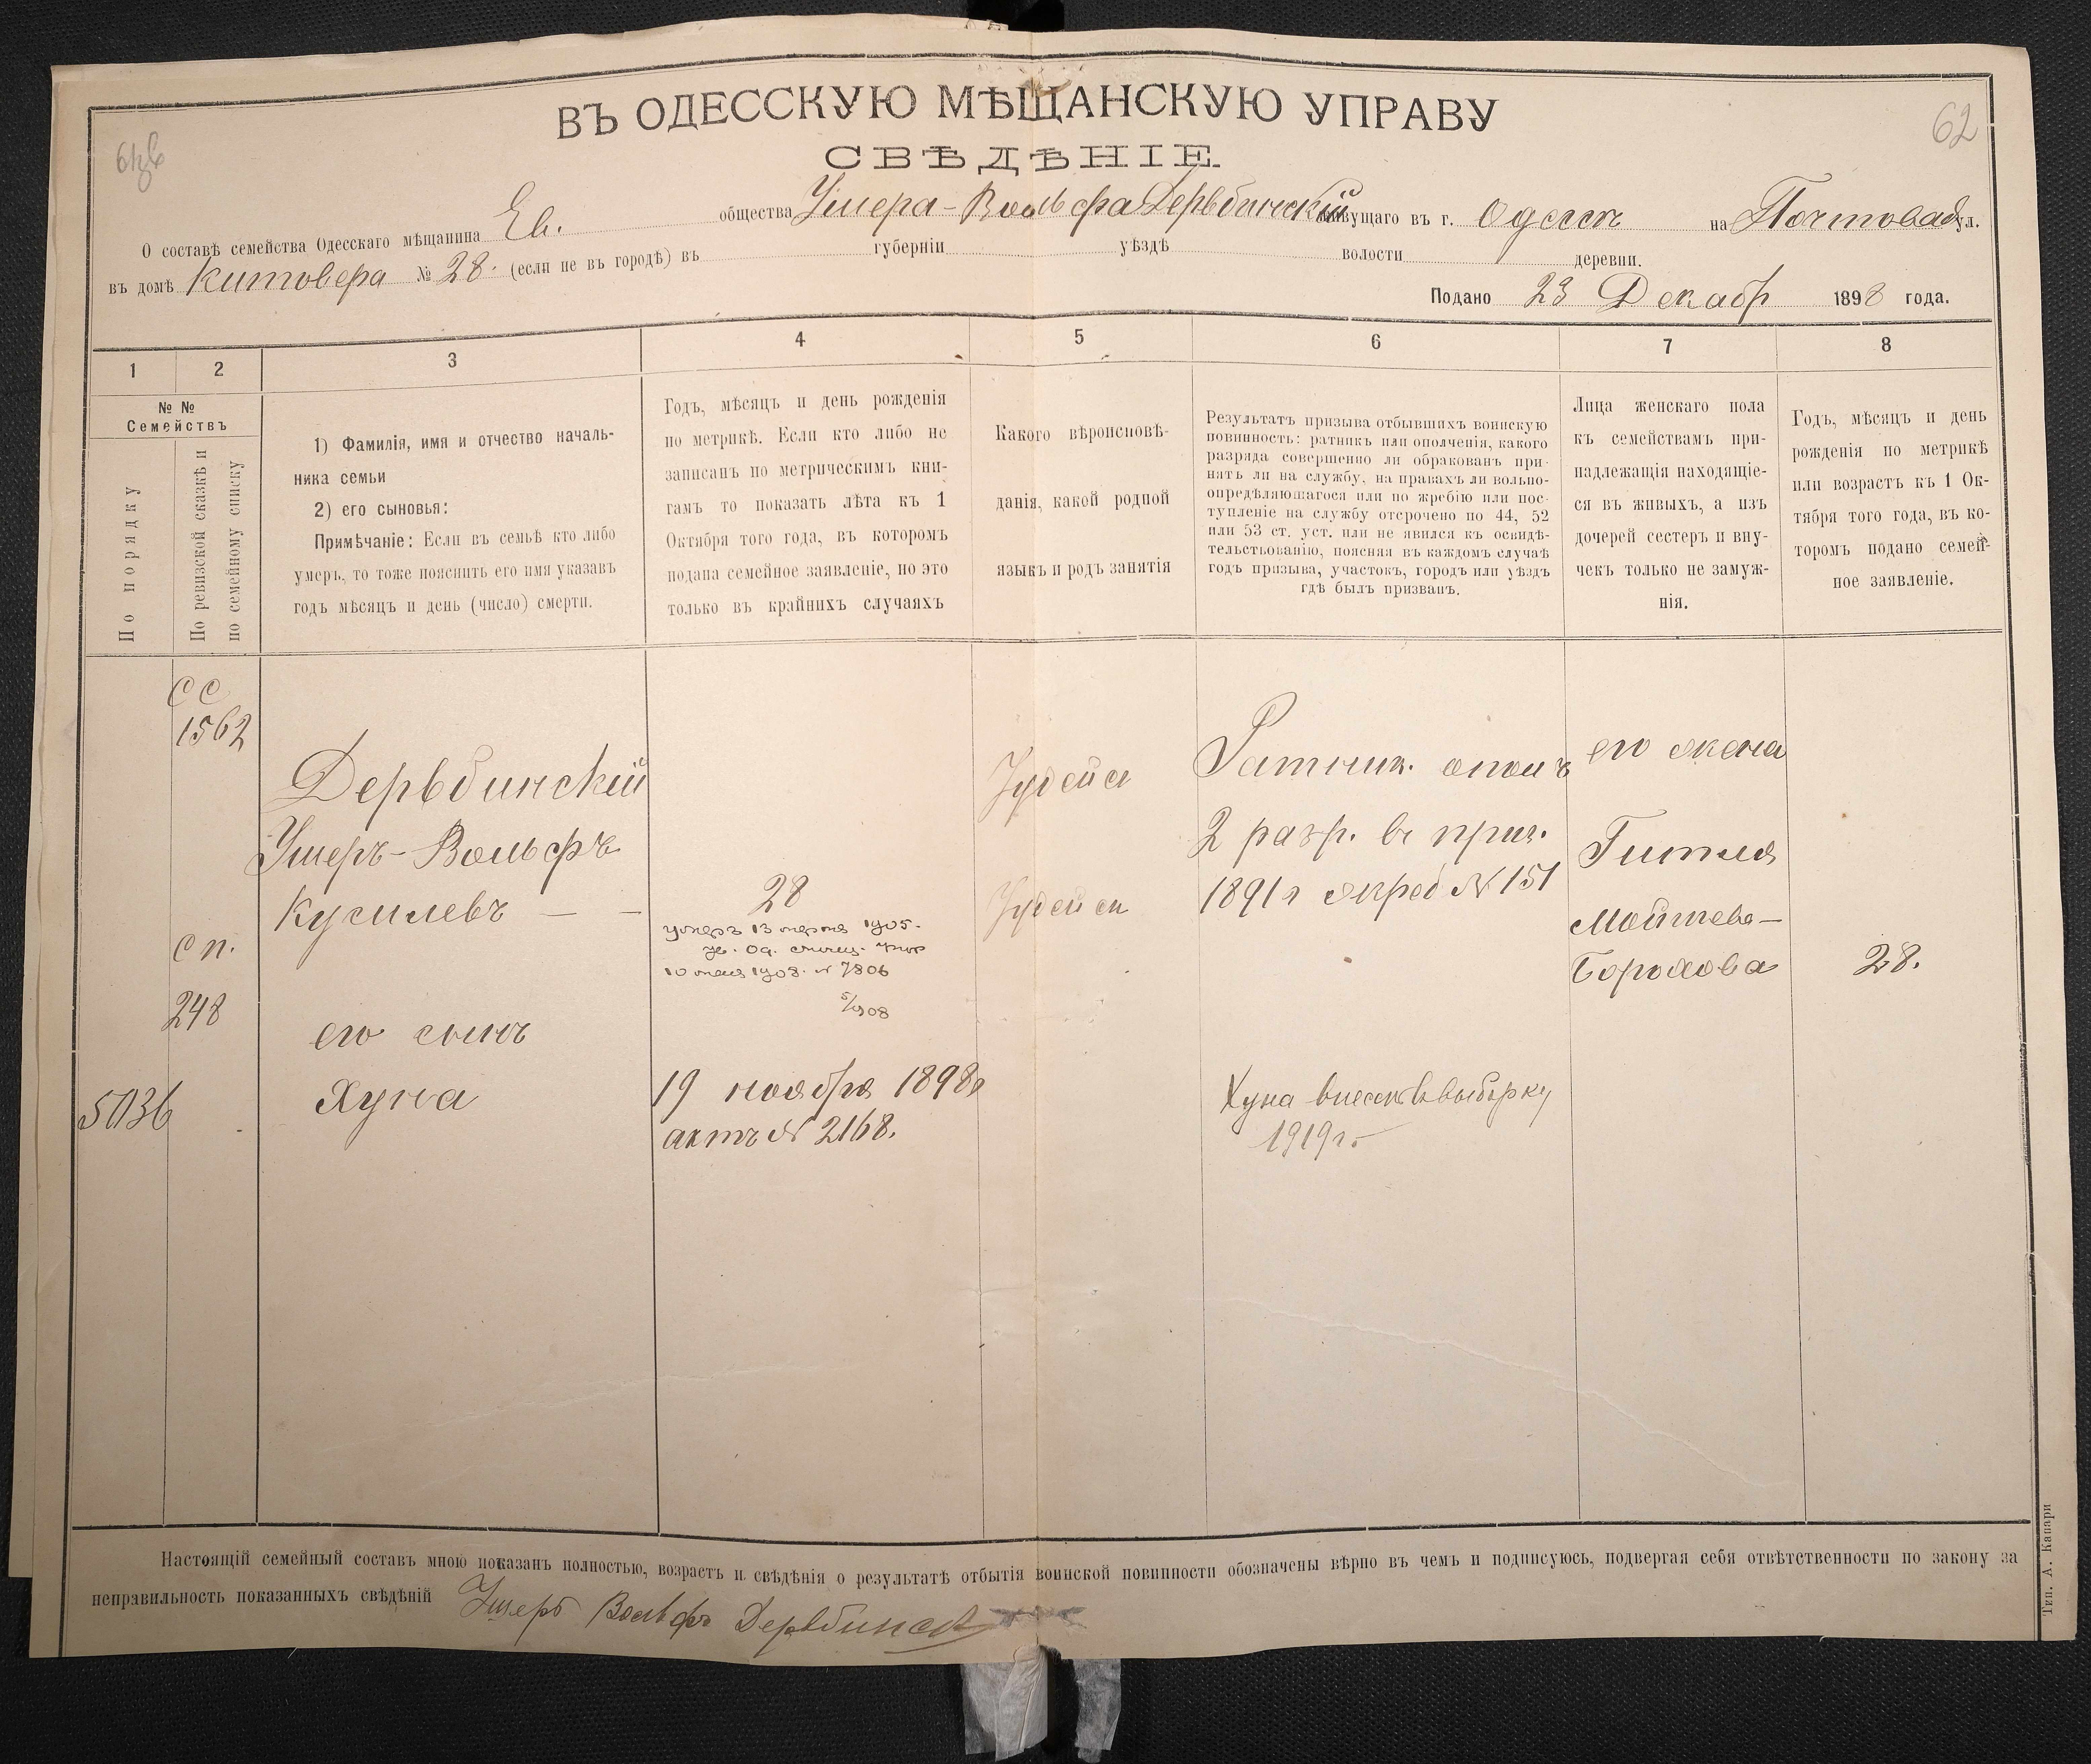 ВЪ ОДЕССКУЮ МѢЩАНСКУЮ УПРАВУ
62
СВѢДѢНІЕ.
О составѣ семейства Одесскаго мѣщанина Ев. общества Ушера-Вольфа Дервбинскій живущаго въ г. Одессѣ на Почтовой ул.
въ домѣ Китовера № 28. (если не въ городѣ) въ губерніи уѣздѣ волости деревни.
Подано 23 Декабр 1898 года.
1 2 3 4 5 6 7 8
№ №
Семействъ
По порядку
По ревизской сказкѣ и
по семейному списку
1) Фамилія, имя и отчество началь-
ника семьи
2) его сыновья:
Примѣчаніе: Если въ семьѣ кто либо
умеръ, то тоже пояснить его имя указавъ
годъ мѣсяцъ и день (число) смерти.
Годъ, мѣсяцъ и день рожденія
по метрикѣ. Если кто либо не
записанъ по метрическимъ кни-
гамъ то показать лѣта къ 1
Октября того года, въ которомъ
подана семейное заявленіе, но это
только въ крайнихъ случаяхъ
Какого вѣроисповѣ-
данія, какой родной
языкъ и родъ занятія
Результатъ призыва отбывшихъ воинскую
повинность: ратникъ или ополченія, какого
разряда совершенно ли обракованъ при-
нятъ ли на службу, на правахъ ли вольно-
опредѣляющагося или по жребію или пос-
тупленіе на службу отсрочено по 44, 52
или 53 ст. уст. или не явился къ освидѣ-
тельствованію, поясняя въ каждомъ случаѣ
годъ призыва, участокъ, городъ или уѣздъ
гдѣ былъ призванъ.
Лица женскаго пола
къ семействамъ при-
надлежащія находящіе-
ся въ живыхъ, а изъ
дочерей сестеръ и вну-
чекъ только не замуж-
нія.
Годъ, мѣсяцъ и день
рожденія по метрикѣ
или возрастъ къ 1 Ок-
тября того года, въ ко-
торомъ подано семей-
ное заявленіе.
СС
1562
Дервбинскій
Ушеръ-Вольфъ
Кусилевъ — —
сп.
248
его сынъ
5036
Хуна
28
умеръ 13 марта 1905.
10 мая 1908. № 7806
5/908
19 ноября 1898г
актъ № 2168.
Іудейск
Іудейск
Ратник. ополч
2 разр. въ приз.
1891г жреб № 151
Хуна внесенъ въ выборку
1919г.
его жена
Гитля
Мойшева-
Борохова
28.
Настоящій семейный составъ мною показанъ полностью, возрастъ и свѣдѣнія о результатѣ отбытія воинской повинности обозначены вѣрно въ чемъ и подписуюсь, подвергая себя отвѣтственности по закону за
неправильность показанныхъ свѣдѣній Ушеръ Вольфъ Дервбинск
Тип. А. Капари